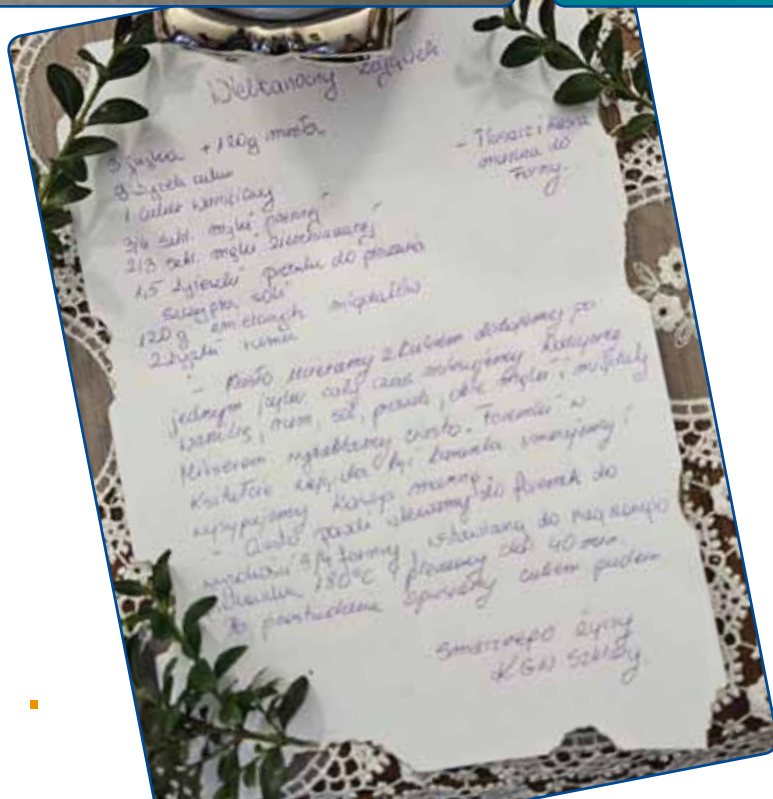 Wielkanocny Zajączek
3 jajka + 120g masła
9 łyżek cukru
1 cukier waniliowy
3/4 szkl. mąki pszennej
2/3 szkl. mąki ziemniaczanej
1,5 łyżeczki proszku do pieczenia
szczypta soli
120 g zmielonych migdałów
2 łyżki rumu
- Tłuszcz i kasza
manna do
formy.
- Masło ucieramy z cukrem dodajemy po
jednym jajku cały czas miksujemy
wanilię, rum, sól, proszek, obie mąki i migdały
Mikserem wyrabiamy ciasto. Foremki w
kształcie zajączka być baranka smarujemy i
wysypujemy kaszą manną.
- Ciasto wlewamy do foremek do
wysokości 3/4 formy, wstawiamy do nagrzanego
piekarnika 180°C i pieczemy ok 40 min.
Po przestudzeniu oprószamy cukrem pudrem
Smacznego życzy
KGW Szkłary